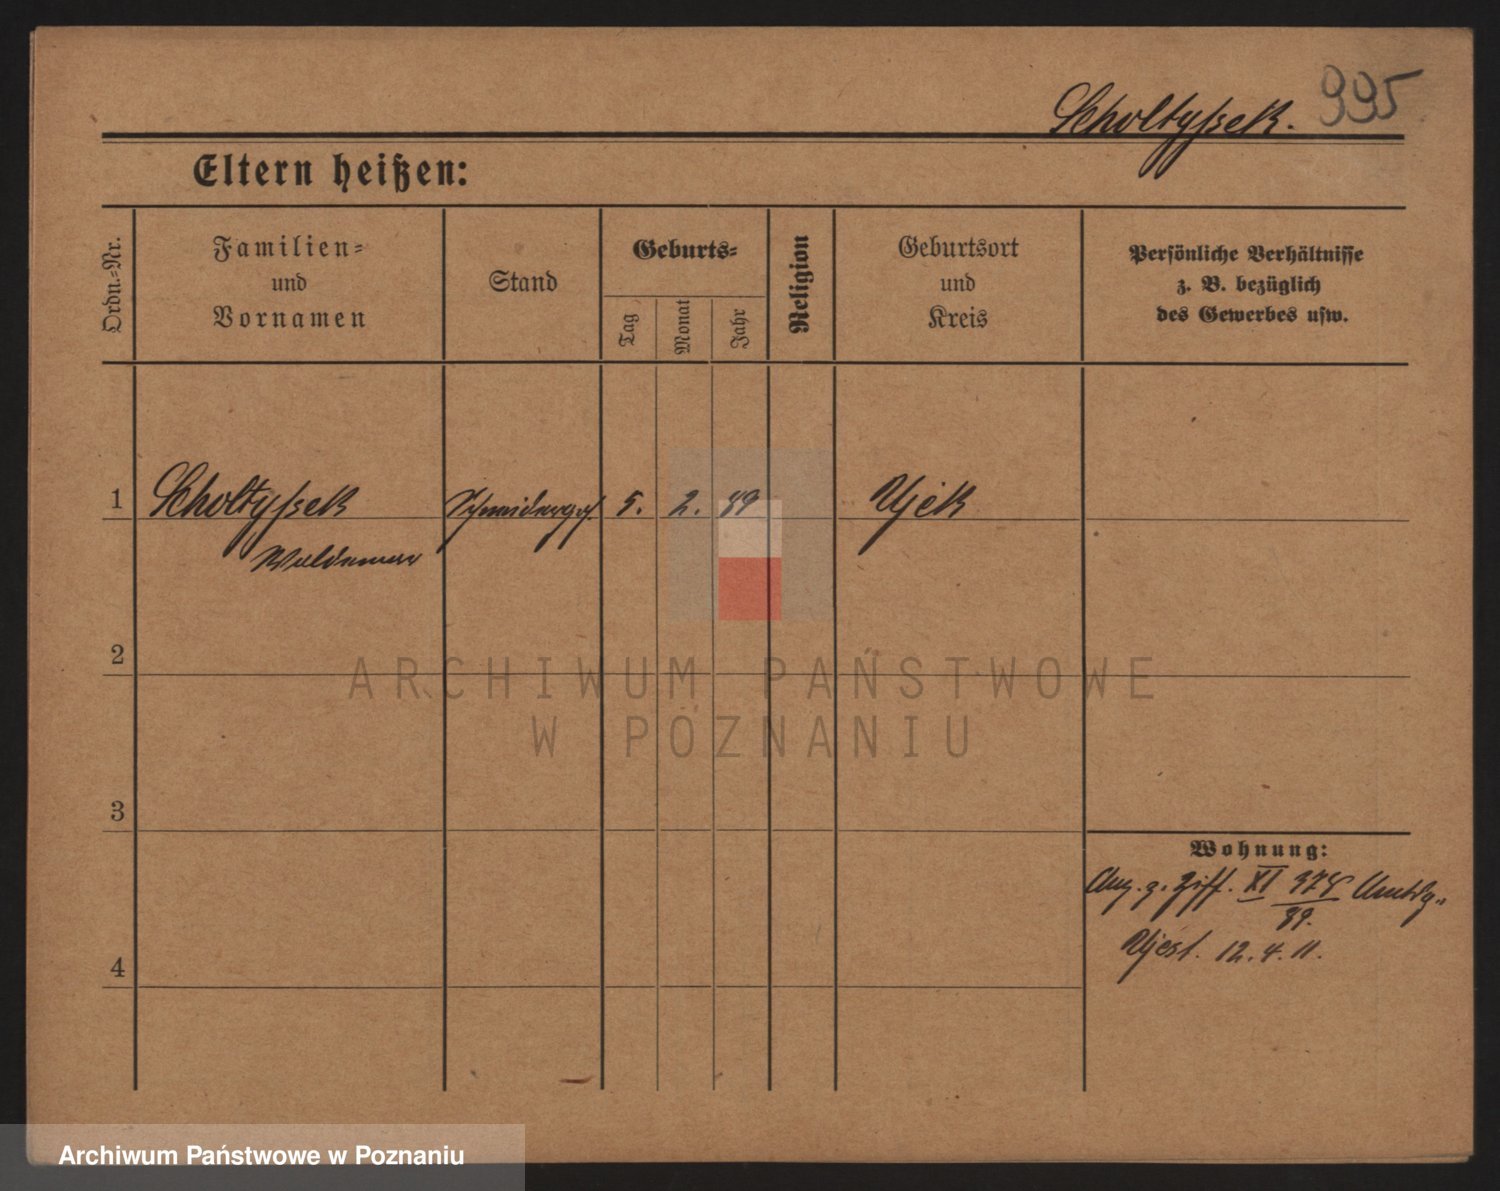 Scholtyssek. 995
Eltern heißen:
Ordn.-Nr.
Familien-
und
Vornamen
Stand
Geburts-
Tag
Monat
Jahr
Religion
Geburtsort
und
Kreis
Persönliche Verhältnisse
z. B. bezüglich
des Gewerbes usw.
1 Scholtyssek 5. 2. 89
Waldemar
2
ARCHIWUM PAŃSTWOWE
W POZNANIU
3
Wohnung:
XI
89.
Ujest. 12.4.11.
4
Archiwum Państwowe w Poznaniu